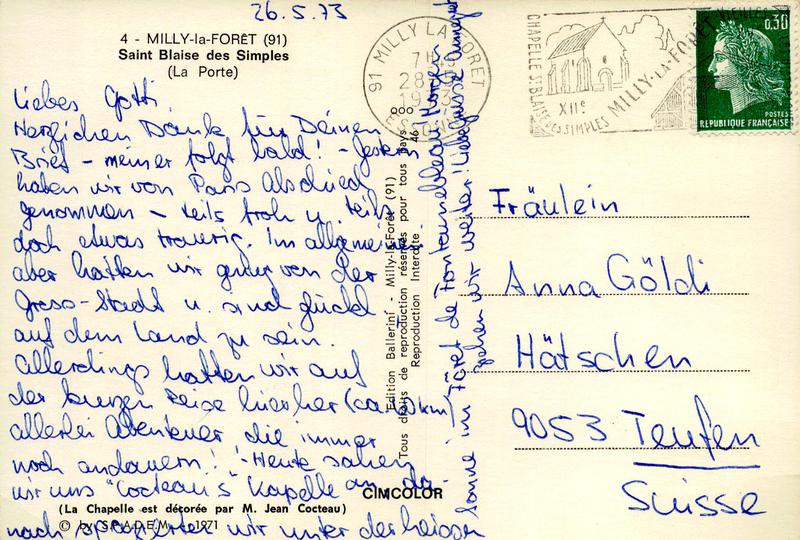 26.5.73
4 - MILLY-la-FORÊT (91)
Saint Blaise des Simples
(La Porte)
Liebes Gotti
Herzlichen Dank für Deinen
Brief - meiner folgt bald! - Gestern
haben wir von Paris Abschied
genommen - teils froh u. teils
doch etwas traurig. Im allgemeinen
aber hatten wir genug von der
Gross-Stadt u. sind glückl.
auf dem Land zu sein.
Allerdings hatten wir auf
der kurzen Reise hierher (ca. km)
allerlei Abenteuer die immer
noch andauern! - Heute sahen
wir uns "Cocteau's" Kapelle an da-
nach spazierten wir unter der heissen
Sonne im Fôret de Fontainebleau Morgen
gehen wir weiter! Liebe Grüsse Annegret
CIMCOLOR
(La Chapelle est décorée par M. Jean Cocteau)
© by S.P.A.D.E.M. 1971
Edition Ballerini - Milly-la-Forêt (91)
Tous droits de reproduction réservés pour tous pays
Reproduction Interdite
46
91 MILLY LA FORET
ESSONNE
CHAPELLE St BLAISE DES SIMPLES
XIIe
MILLY-LA-FORÊT
0,30
POSTES
REPUBLIQUE FRANÇAISE
Fräulein
Anna Göldi
Hätschen
9053 Teufen
Suisse